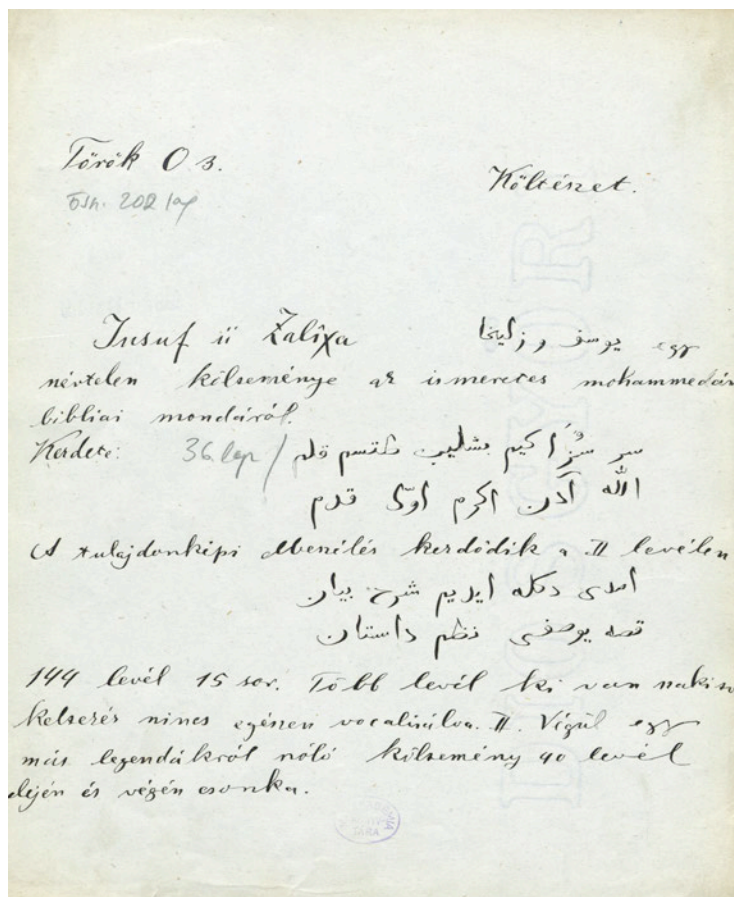 Török O 3.
Költészet.
Ösh. 202 lap
Jusuf ü Zalîχa یوسف و زلیخا egy
névtelen költeménye az ismeretes mohammedán
bibliai mondáról.
Kezdete: 36 lap / سر سُزُاكیم بشلیب طتسم قلم
الله آدن اكرم اوّل قدم
A tulajdonképi elbeszélés kezdődik a II levélen
امدی دكله ایدیم شرح بیان
قصه یوصفی نظم داستان
144 levél 15 sor. Több levél ki van szakiszt
keltezés nincs egészen vocalisálva. II. Végül egy
más legendákról szóló költemény 40 levél
elején és végén csonka.